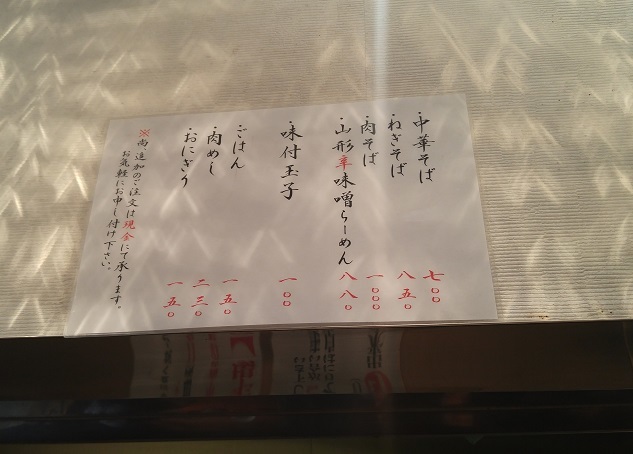 ・中華そば 七〇〇
・ねぎそば 八五〇
・肉そば 一〇〇〇
・山形辛味噌らーめん 八八〇
・味付玉子 一〇〇
・ごはん 一五〇
・肉めし 二三〇
・おにぎり 一五〇
※尚、追加のご注文は現金にて承ります。
お気軽にお申し付け下さい。